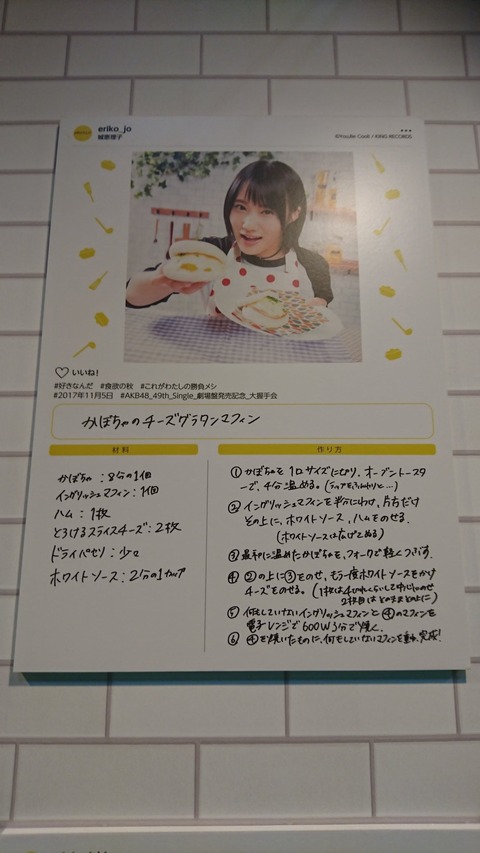 eriko_jo
城恵理子
©YouBe Cool! / KING RECORDS
いいね!
#好きなんだ #食欲の秋 #これがわたしの勝負メシ
#2017年11月5日 #AKB48_49th_Single_劇場盤発売記念_大握手会
かぼちゃのチーズグラタンマフィン
材料
かぼちゃ:8分の1個
イングリッシュマフィン:1個
ハム:1枚
とろけるスライスチーズ:2枚
ドライパセリ:少々
ホワイトソース:2分の1カップ
作り方
① かぼちゃを1口サイズに切り、オーブントースター
で、4分温める。(ラップをふんわりと…)
② イングリッシュマフィンを半分にわけ、片方だけ
その上に、ホワイトソース、ハムをのせる。
(ホワイトソースは広げてぬる)
③ 最初に温めたかぼちゃを、フォークで軽くつぶす。
④ ②の上に③をのせ、もう一度ホワイトソースをかけ
チーズをのせる。(1枚は4つ
⑤ 何もしていないイングリッシュマフィンと④のマフィンを
電子レンジで600W3分で焼く。
⑥ ④を焼いたものに、何もしていないマフィンを重ね、完成!